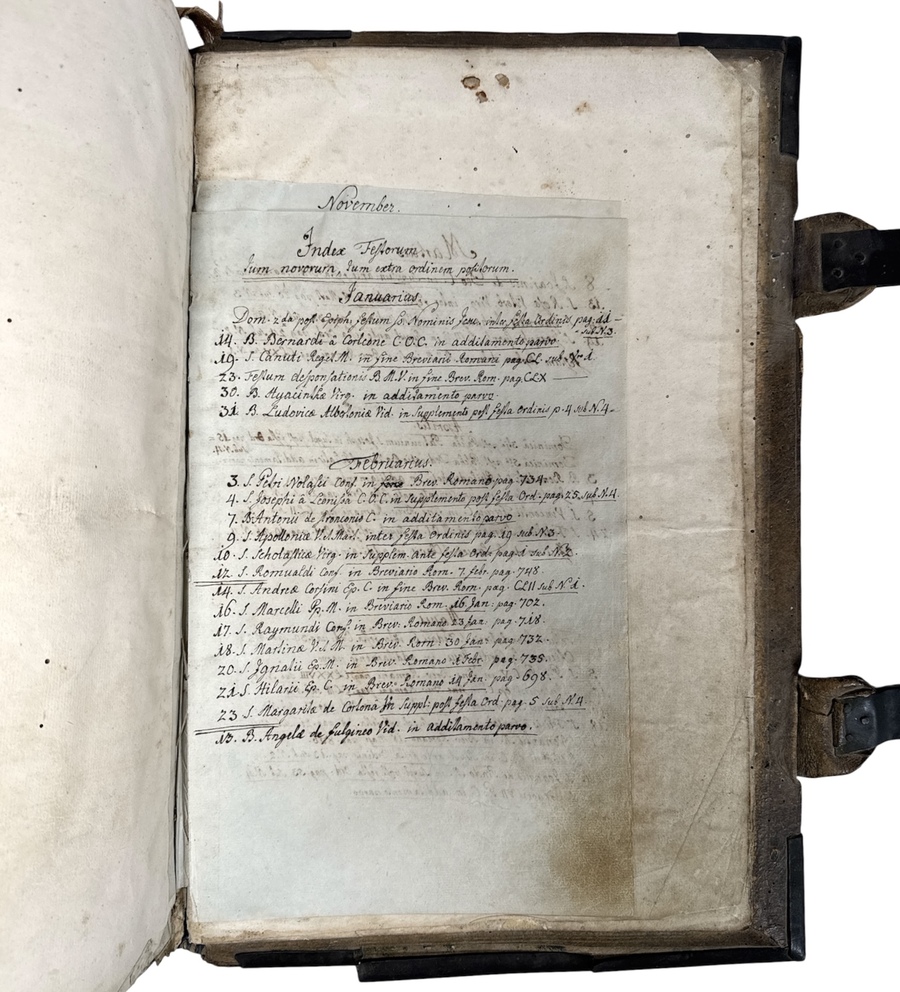 November.
Index Festorum
Tum novorum, tum extra ordinem positorum.
Januarius.
Dom. 2da post Epiph. festum ss. Nominis Jesu, inter festa Ordinis pag. 11
sub N. 3.
14. B. Bernardi à Corleone C. O. C. in additamento parvo
19. S. Canuti Regis M. in fine Breviarii Romani pag. CL. sub N. 1.
23. Festum desponsationis B. M. V. in fine Brev. Rom. pag. CLX
30. B. Hyacinthæ Virg. in additamento parvo.
31. B. Ludovicæ Albertoniæ Vid. in Supplemento post festa Ordinis p. 4 sub N. 4
Februarius.
3. S. Petri Nolasci Conf. in Brev. Romano pag. 734.
4. S. Josephi à Leonissa C. O. C. in Supplemento post festa Ord. pag. 25 sub N. 4.
7. B. Antonii de Stronconio C. in additamento parvo
9. S. Apolloniæ V. et Mart. inter festa Ordinis pag. 19 sub N. 3.
10. S. Scholasticæ Virg. in Supplem. ante festa Ord. pag. 1 sub N. 2.
12. S. Romualdi Conf. in Breviario Rom. 7 febr. pag. 748.
14. S. Andreæ Corsini Ep. C. in fine Brev. Rom. pag. CLII sub N. 1.
16. S. Marcelli Pp. M. in Breviario Rom. 16 Jan. pag. 702.
17. S. Raymundi Conf. in Brev. Romano 23 Jan. pag. 718.
18. S. Martinæ V. et M. in Brev. Rom. 30 Jan. pag. 732.
20. S. Ignatii Ep. M. in Brev. Romano 1 Febr. pag. 735.
21. S. Hilarii Ep. C. in Brev. Romano 14 Jan. pag. 698.
23 S. Margaritæ de Cortona in Suppl. post festa Ord. pag. 5 sub N. 4
13. B. Angelæ de fulgineo Vid. in additamento parvo.